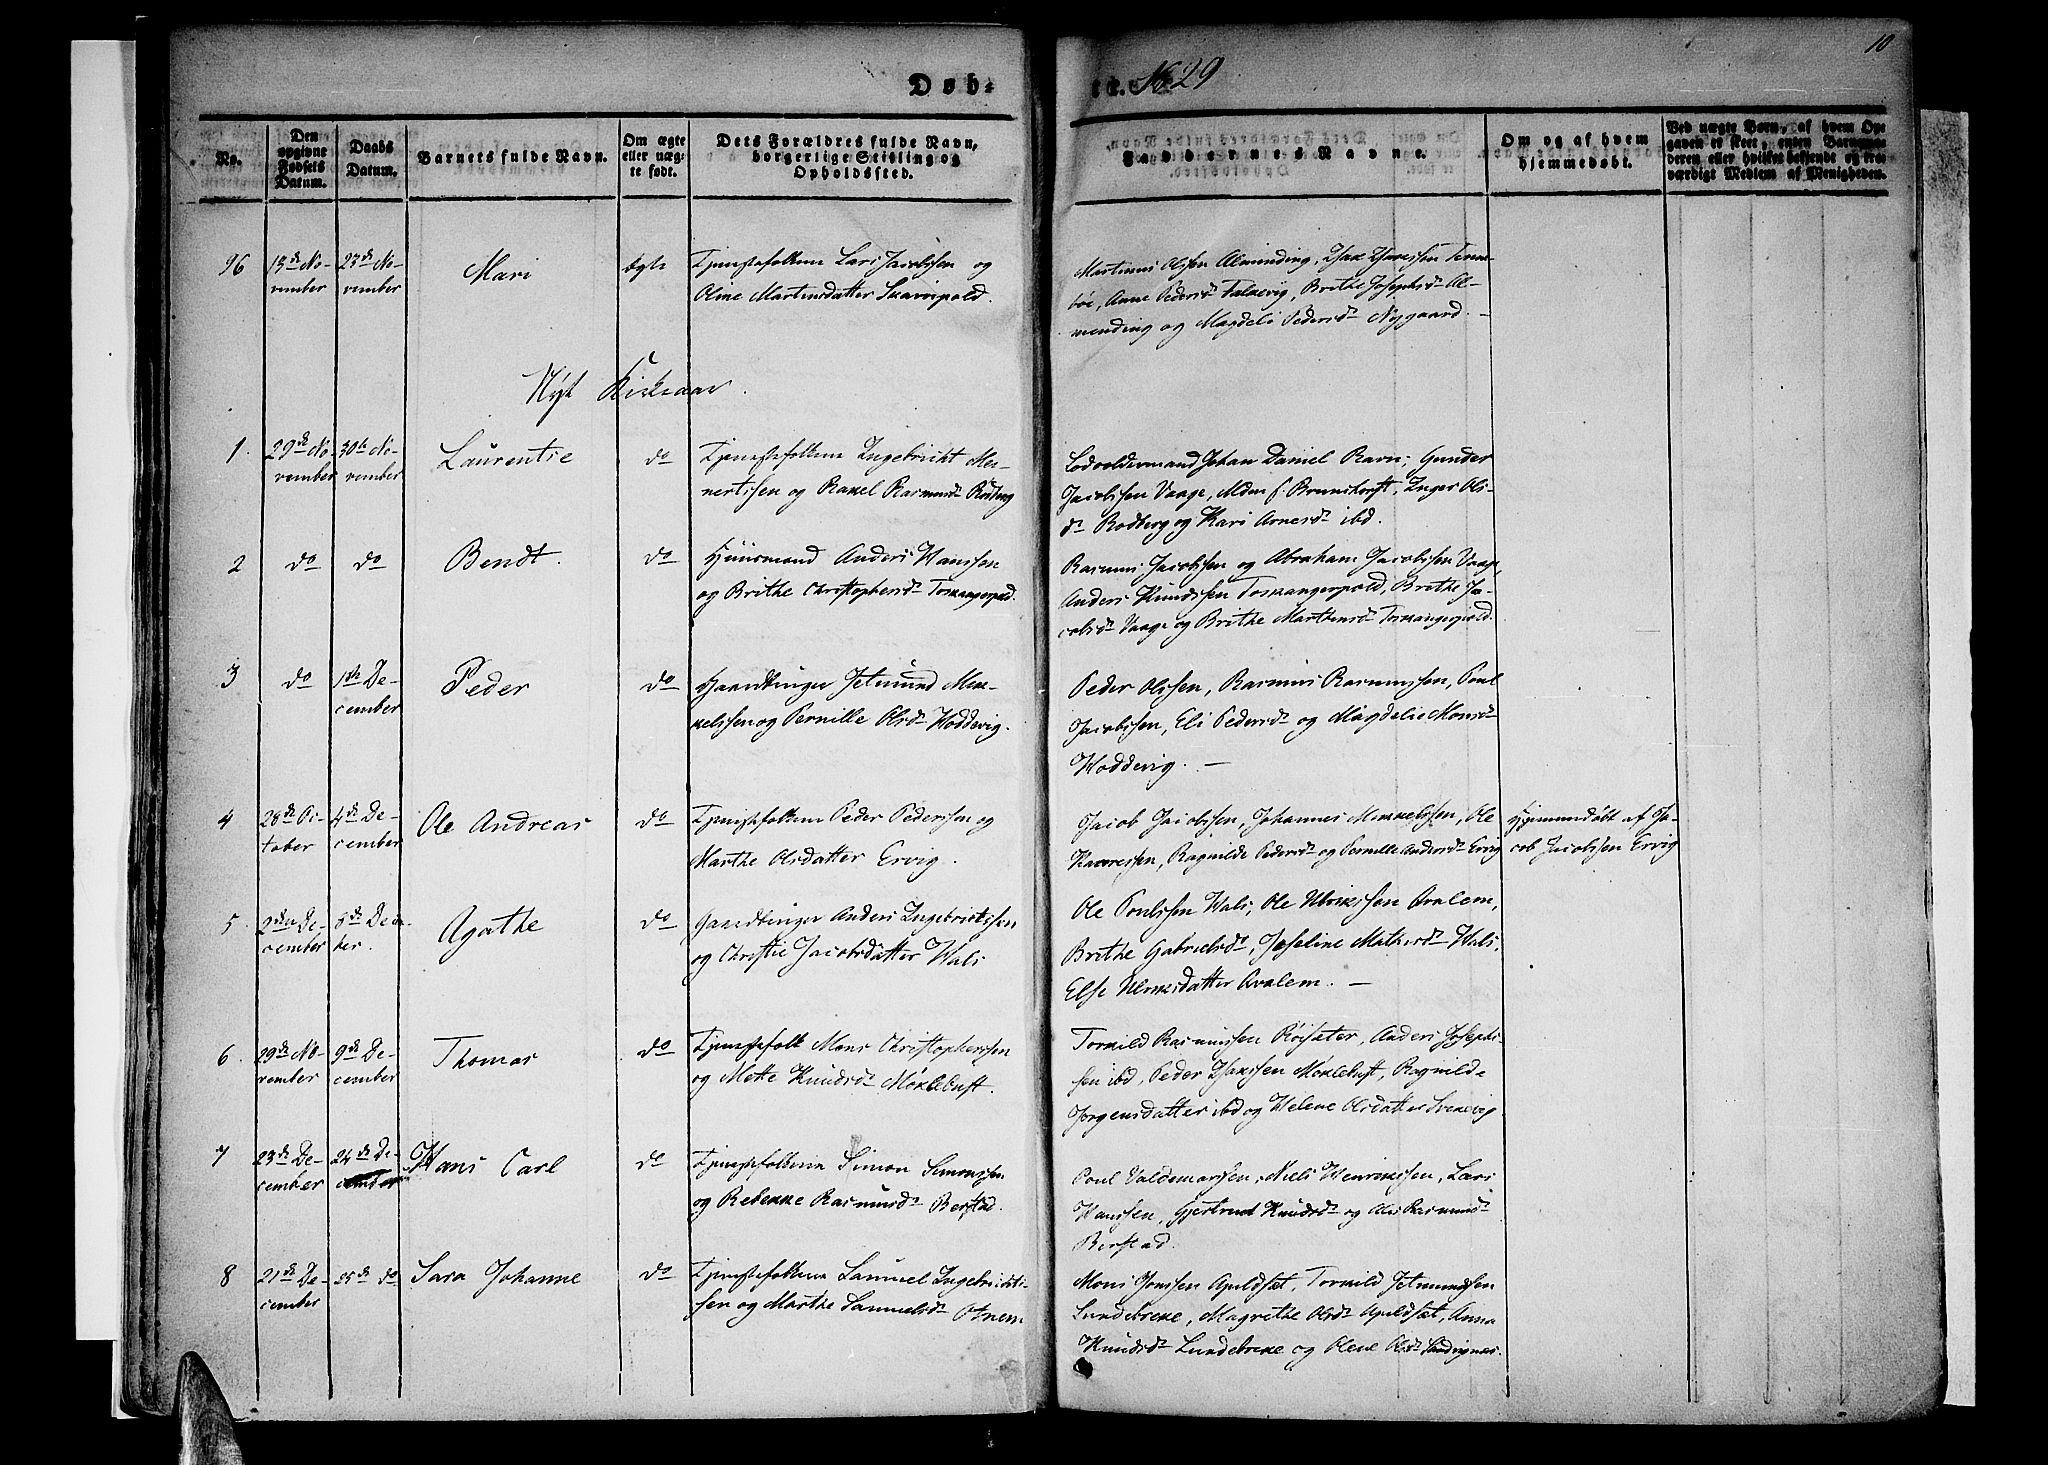 10
Døb-
te. No 29
No.
Den opgivne Fødsels Datum.
Daabs Datum.
Barnets fulde Navn.
Om ægte eller uægte født.
Dets Forældres fulde Navn, borgerlige Stilling og Opholdssted.
Faddernes Navne.
Om og af hvem hjemmedøbt.
Ved uægte Børn, af hvem Opgaven er skeet, enten Barnemoderen eller hvilket bekjendt og troværdigt Medlem af Menigheden.
96
15de No-
vember
23de No-
vember
Mari
ægte
Tjenestefolkene Lars Jacobssen og
Oline Martensdatter
Martinus Olssen Almending,
Anne Pedersdr Falkevig, Brithe Josephsdr Al-
mending og Magdeli Pedersdr Nygaard.
Nyt Kirkeaar.
1.
29de No-
vember
30te No-
vember
Laurentse
do
Tjenestefolkene Ingebricht
og Rakel Rasmusdr Rødberg
Johan Daniel Ravn, Gunder
Jacobssen Vaage, Mdm f. Brunchorst, Inger Ols-
dr Rodberg og Kari Arnesdr ibd.
2
do
do
Bendt.
do
Huusmand Anders Hanssen
og Brithe Christophersdr Torvangerpold.
Rasmus Jacobssen og Abraham Jacobssen Vaage,
Anders Knudssen Torvangerpold, Brithe Ja-
cobsdr Vaage og Brithe Marthensdr Torvangerpold.
3
do
1ste De-
cember
Peder
do
Gaardbruger Jetmund Mik-
kelssen og Pernille Olsdr Hoddevig.
Peder Olssen, Rasmus Rasmussen, Poul
Jacobssen, Eli Pedersdr og Magdelie Monsdr
Hoddevig. —
4
28de Oc-
tober
4de De-
cember
Ole Andreas
do
Tjenestefolkene Peder Pederssen og
Marthe Olsdatter Ervig.
Jacob Jacobssen, Johannes Mikkelssen, Ole
Ragnilde Pedersdr og Pernille Andersdr Ervig
Hjemmedøbt af Ja-
cob Jacobssen Ervig
5.
2den De-
cember
8de Decem-
ber.
Agathe
do
Gaardbruger Anders Ingebrictssen
og Christie Jacobsdatter Hals
Ole Poulssen Hals, Ole Ulrikssen Qvalem,
Brithe Gabrielsdr, Joseline Mathesdr Hals,
Else Ulriksdatter Qvalem. —
6.
29de No-
vember
9de De-
cember
Thomas
do
Tjenestefolk Mons Christopherssen
og Mette Knudsdr Møklebust.
Torkild Rasmussen Røisæter, Anders Josephs-
sen ibd, Peder Møklebust, Ragnilde
Jørgensdatter ibd og Helene Olsdatter
7
23de De-
cember
24de De-
cember
Hans Carl
do
Tjenestefolkene Simon Simonssen
og Rebekke Rasmusdr Berstad.
Poul Valdemarssen, Niels Henrikssen, Lars
Hanssen, Gjertrud Knudsdr og Rasmusdr
Berstad.
8
21de De-
cember
25de do
Sara Johanne
do
Tjenestefolkene Samuel Ingebrickts-
sen og Marthe Samuelsdr Otnem
Mons Apuldset, Torkild Jetmundssen
Lundebrekke, Magrethe Olsdr Apuldset, Anna
Knudsdr Lundebrekke og Olene Olsdr